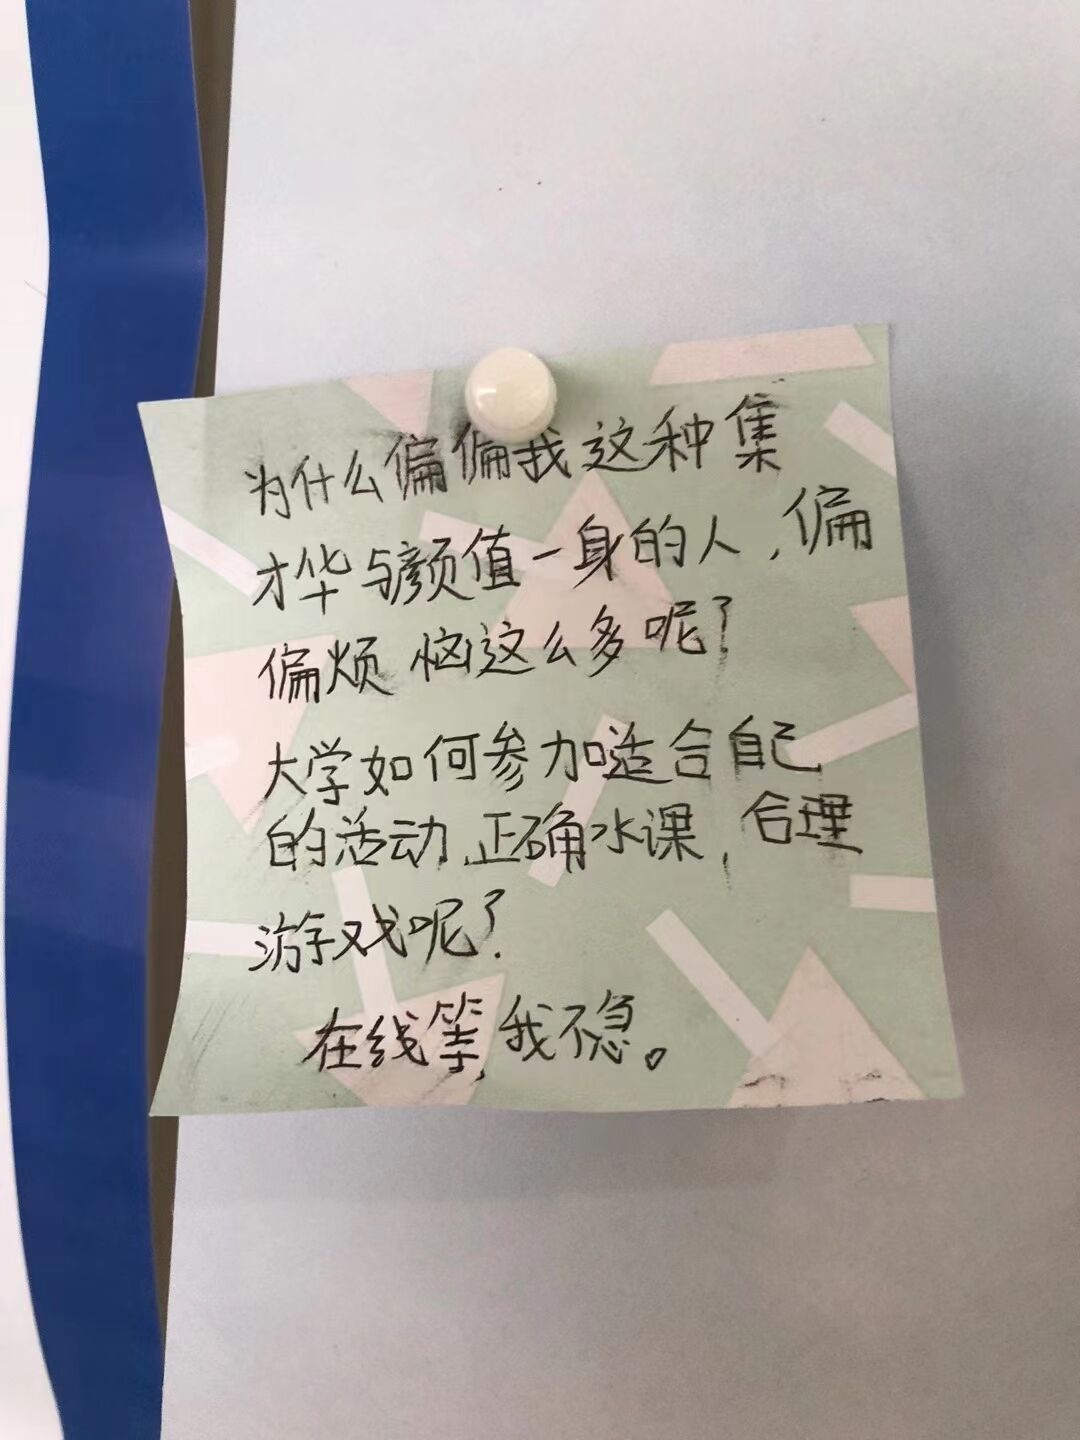 为什么偏偏我这种集
才华与颜值一身的人，偏
偏烦恼这么多呢？
大学如何参加适合自己
的活动，正确水课，合理
游戏呢？
在线等，我不急。